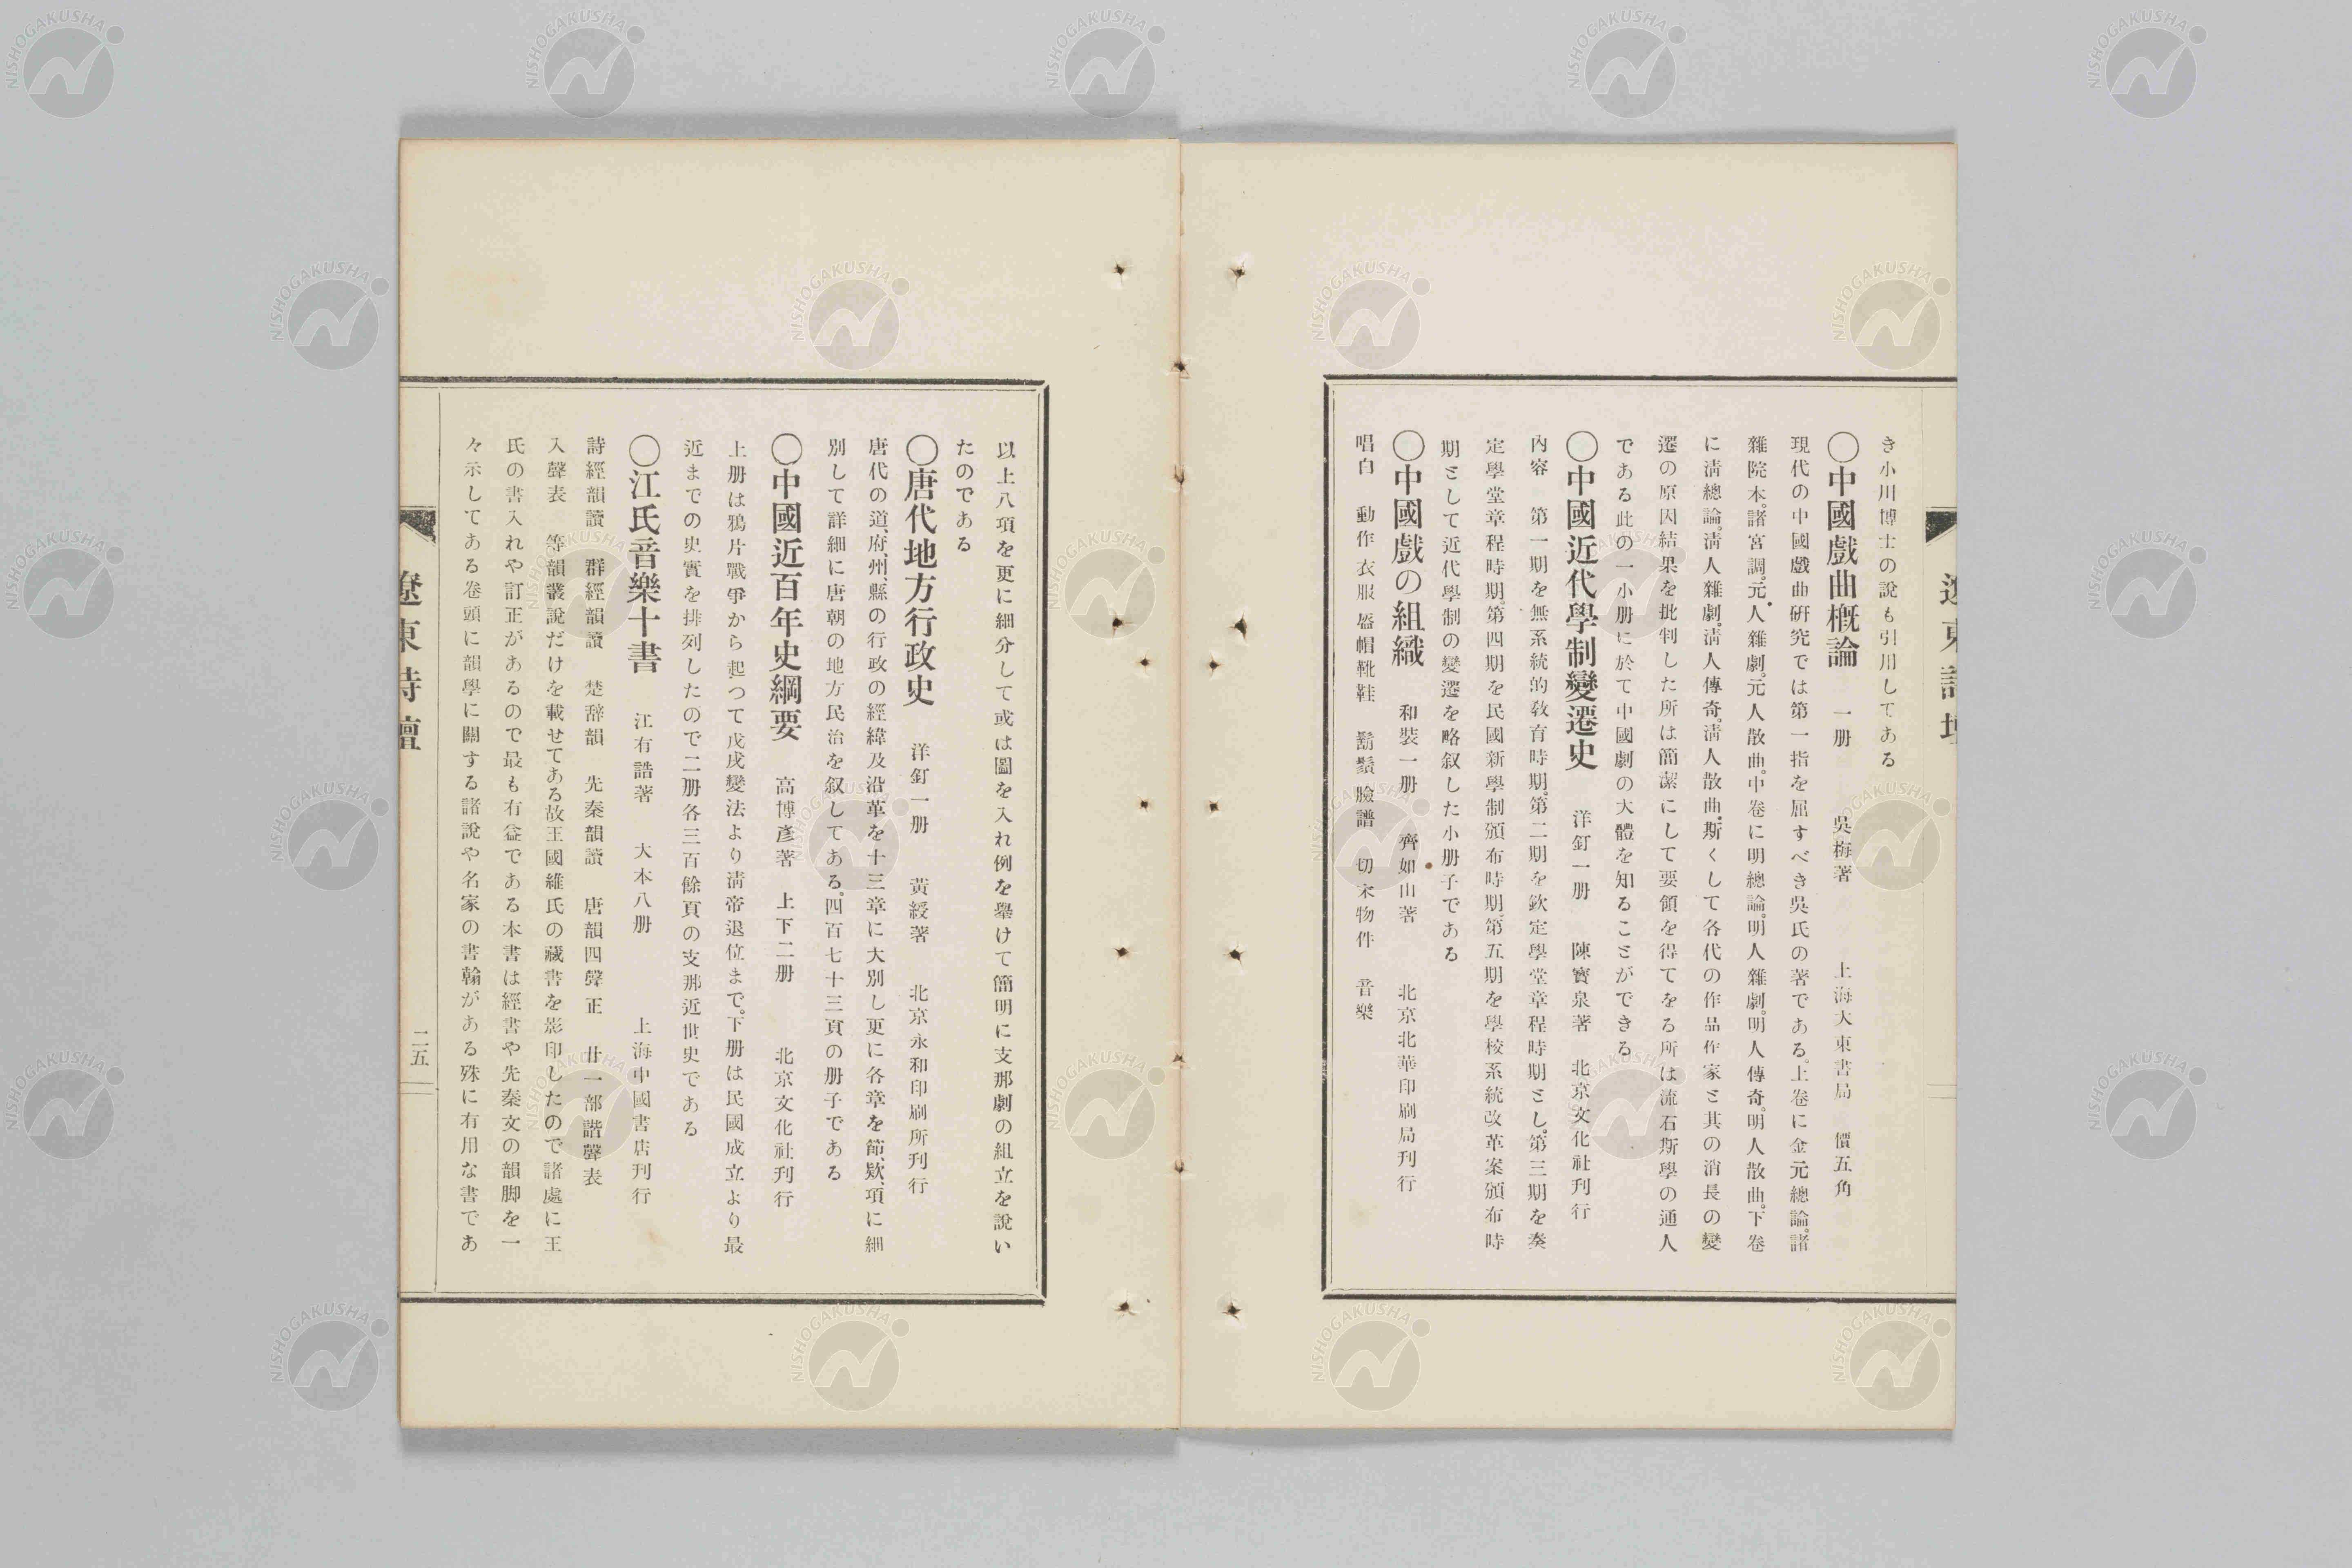 き小川博士の說も引用してある
〇中國戲曲槪論　一册　吳梅著　上海大東書局　價五角
現代の中國戲曲硏究では第一指を屈すべき吳氏の著である。上卷に金元總論。諸
雜院本。諸宮調。元人雜劇。元人散曲。中卷に明總論。明人雜劇。明人傳奇。明人散曲。下卷
に淸總論。淸人雜劇。淸人傳奇。淸人散曲。斯くして各代の作品作家と其の消長の變
遷の原因結果を批判した所は簡潔にして要領を得てをる所は流石斯學の通人
である此の一小册に於て中國劇の大體を知ることができる
〇中國近代學制變遷史　洋釘一册　陳寳泉著　北京文化社刊行
內容　第一期を無系統的敎育時期。第二期を欽定學堂章程時期とし。第三期を奏
定學堂章程時期。第四期を民國新學制頒布時期。第五期を學校系統改革案頒布時
期として近代學制の變遷を略叙した小册子である
〇中國戲の組織　和裝一册　齊如山著　北京北華印刷局刊行
唱白　動作　衣服　盔帽靴鞋　鬍鬚　臉譜　切末物件　音樂
遼東詩壇
以上八項を更に細分して或は圖を入れ例を擧けて簡明に支那劇の組立を說い
たのである
〇唐代地方行政史　洋釘一册　黃綬著　北京永和印刷所刊行
唐代の道、府、州、縣の行政の經緯及沿革を十三章に大別し更に各章を節、欵、項に細
別して詳細に唐朝の地方民治を叙してある。四百七十三頁の册子である
〇中國近百年史綱要　高博彥著　上下二册　北京文化社刊行
上册は鴉片戰爭から起つて戊戌變法より淸帝退位まで。下册は民國成立より最
近までの史實を排列したので二册各三百餘頁の支那近世史である
〇江氏音樂十書　江有誥著　大本八册　上海中國書店刊行
詩經韻讀　群經韻讀　楚辞韻　先秦韻讀　唐韻四聲正　廿一部諧聲表
入聲表　等韻叢說だけを載せてある故王國維氏の藏書を影印したので諸處に王
氏の書入れや訂正があるので最も有益である本書は經書や先秦文の韻脚を一
々示してある卷頭に韻學に關する諸說や名家の書翰がある殊に有用な書であ
遼東詩壇
二五